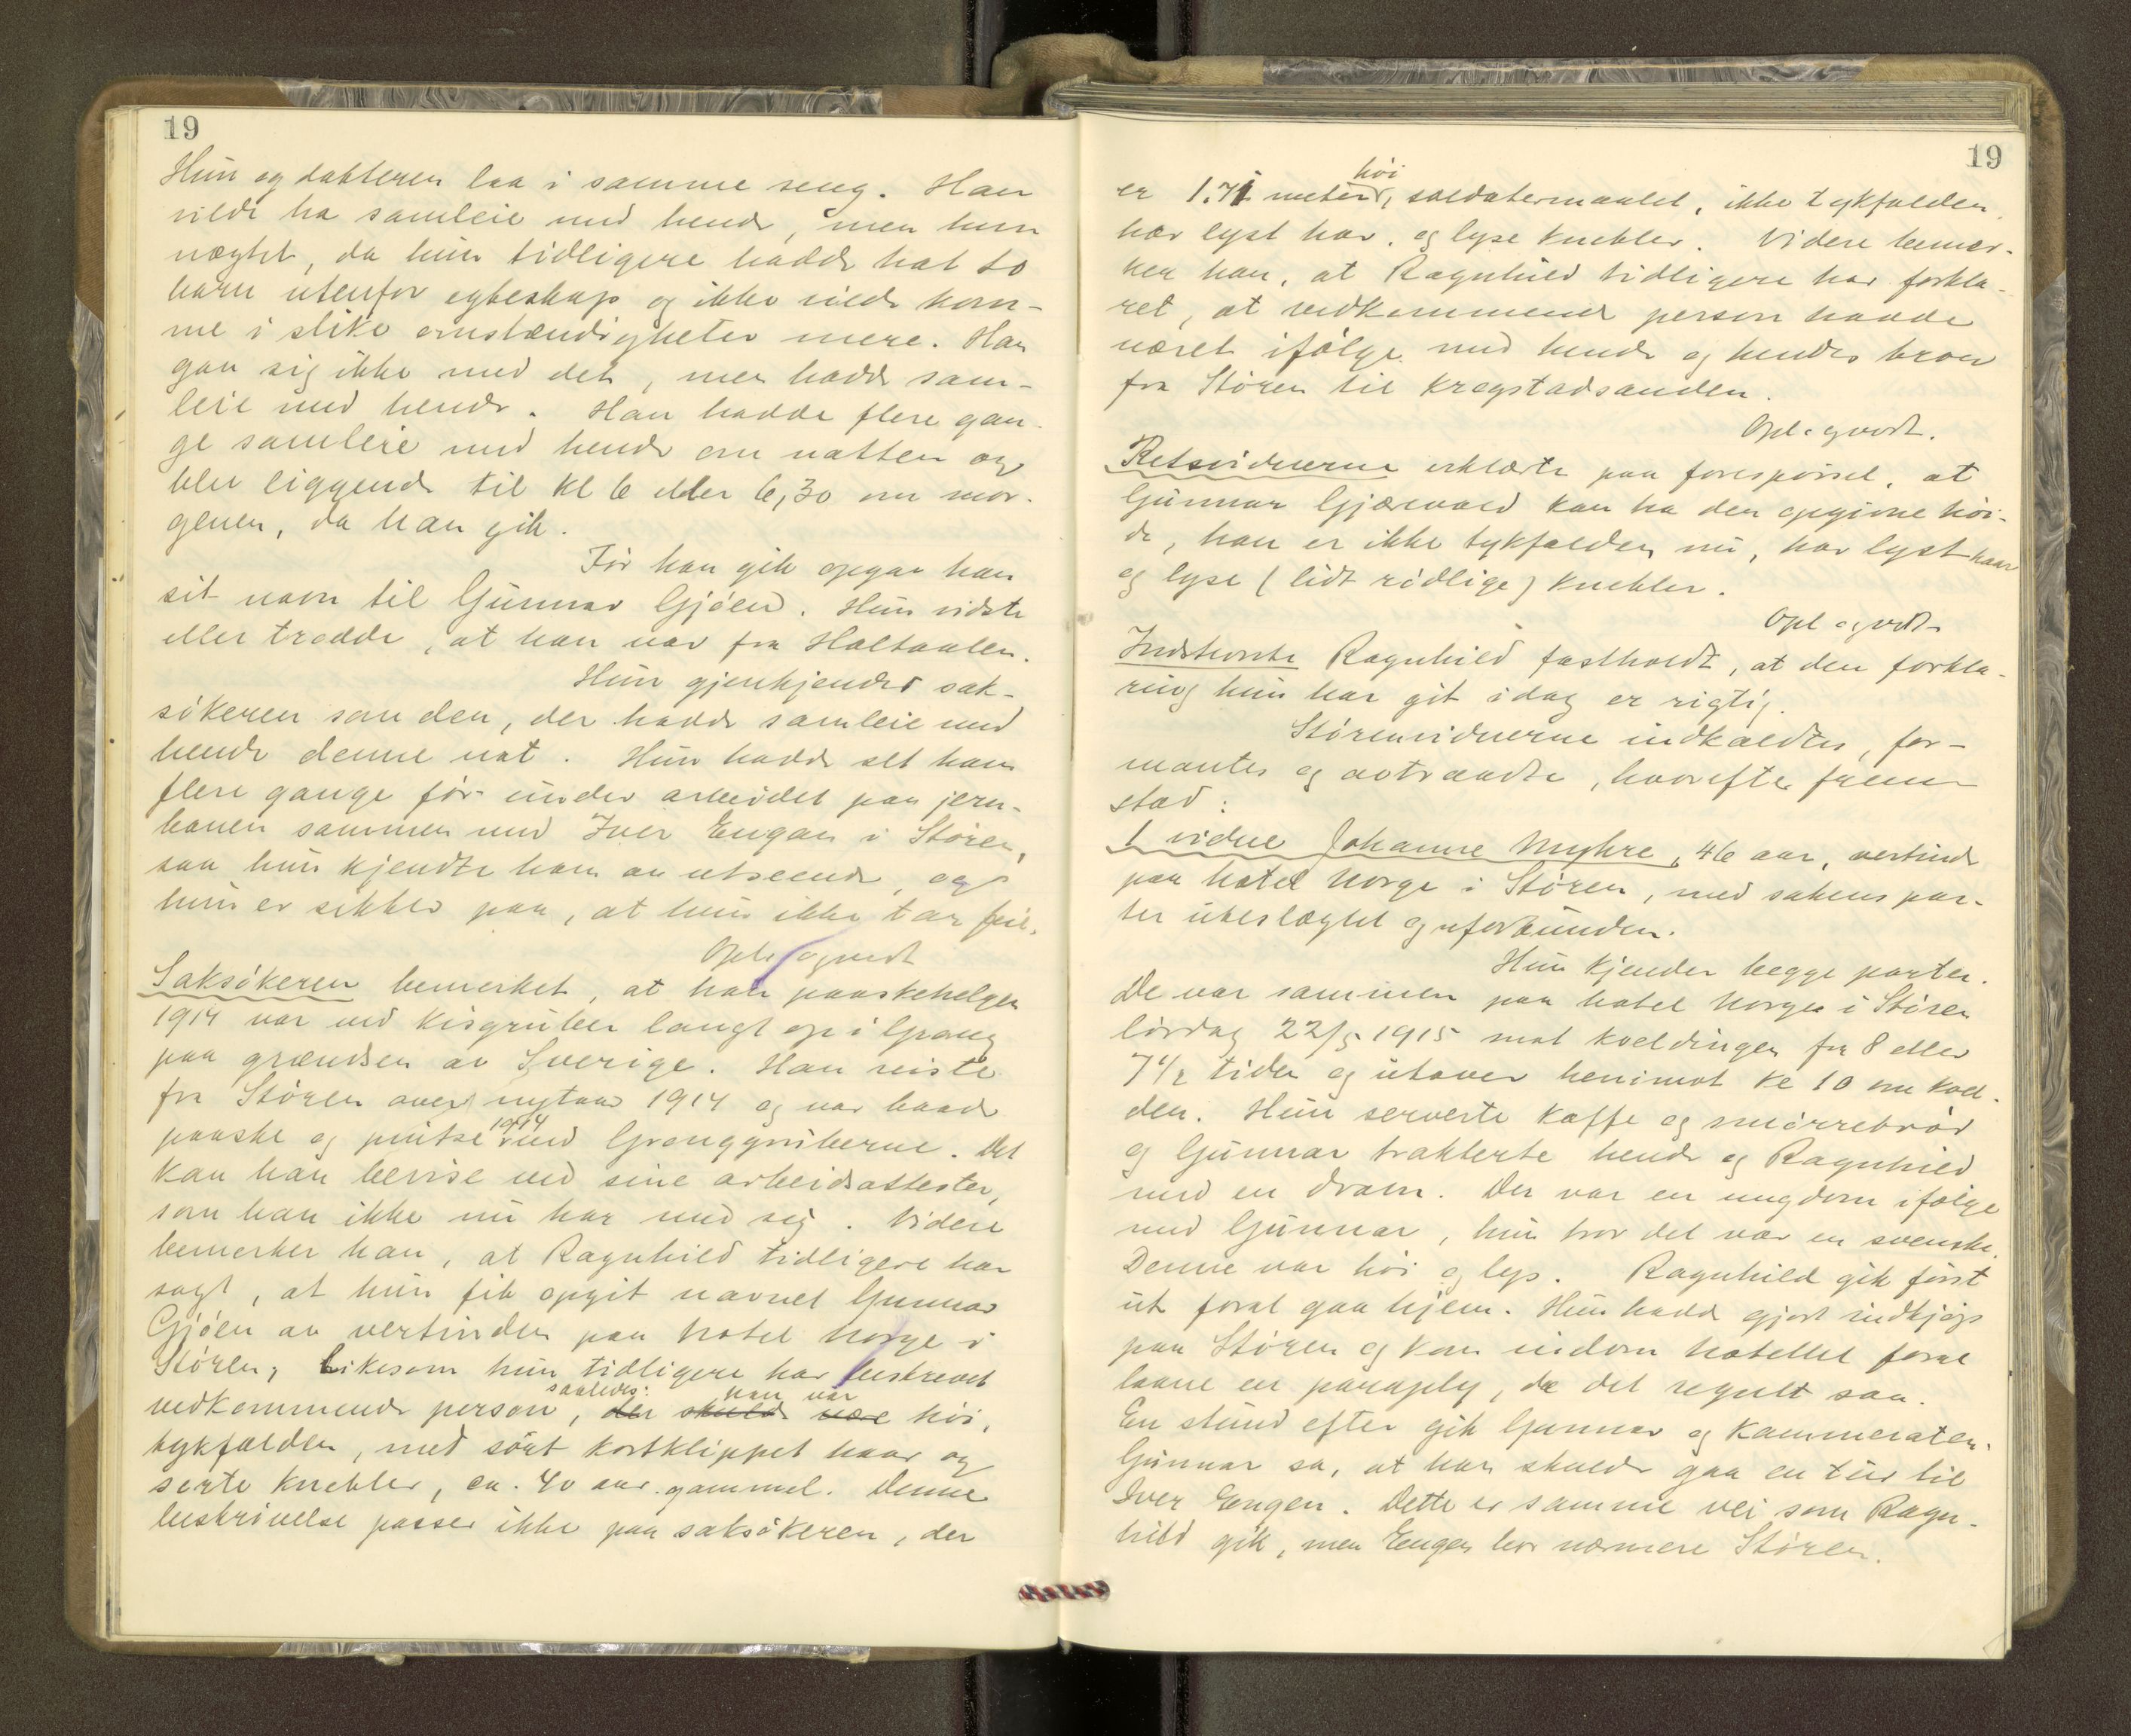 19
Hun og datteren laa i samme seng. Han
vilde ha samleie med hende, men hun
nægtet, da hun tidligere hadde hat to
barn utenfor egteskap og ikke vilde kom-
me i slike omstændigheter mere. Han
gav sig ikke med det, men hadde sam-
leie med hende. Han hadde flere gan-
ge samleie med hende om natten og
blev liggende til kl 6 eller 6,30 om mor-
genen, da han gik.
Før han gik opgav han
sit navn til Gunnar Gjøen. Hun vidste
eller trodde, at han var fra Holtaalen.
Hun gjenkjender sak-
søkeren som den, der hadde samleie med
hende denne nat. Hun hadde set ham
flere gange før under arbeidet paa jern-
banen sammen med Iver Engan i Støren,
saa hun kjendte ham av utseende, og
hun er sikker paa, at hun ikke tar feil.
Opl. og vedt
Saksøkeren bemerket, at han paaskehelgen
1914 var ved kisgruber langt op i Grong
paa grændsen av Sverige. Han reiste
fra Støren over nytaar 1914 og var baade
paaske og pintse 1914 ved Gronggruberne. Det
kan han bevise ved sine arbeidsattester,
som han ikke nu har med sig. Videre
bemerker han, at Ragnhild tidligere har
sagt, at hun fik opgit navnet Gunnar
Gjøen av vertinden paa hotel Norge i
Støren, likesom hun tidligere har beskrevet
vedkommende person saaledes:, der skulde være han var høi,
tykfalden, med sort kortklippet haar og
sorte knebler, ca. 40 aar gammel. Denne
beskrivelse passer ikke paa saksøkeren, der
19
er 1.71 meter høi, soldatermaalet, ikke tykfalden,
har lyst har. og lyse knebler. Videre bemer-
ker han, at Ragnhild tidligere har forkla-
ret, at vedkommende person hadde
været ifølge med hende og hendes bror
fra Støren til Kregstadsanden.
Opl. og vedt.
Retsvidnerne erklærte paa forespørsel, at
Gunnar Gjærvold kan ha den opgivne høi-
de, han er ikke tykfalden nu, har lyst haar
og lyse (lidt rødlige) knebler.
Opl og vedt.
Indstevnte Ragnhild fastholdt, at den forkla-
ring hun har git idag er rigtig.
Størenvidnerne indkaldtes, for-
mantes og avtraadte, hvorefter frem-
stod:
1 vidne Johanne Myhre, 46 aar, vertinde
paa hotel Norge i Støren, med sakens par-
ter ubeslægtet og uforbunden.
Hun kjender begge parter.
De var sammen paa hotel Norge i Støren
lørdag 22/5 1915 mot kveldingen fra 8 eller
7½ tiden og utover henimot kl 10 om kvel-
den. Hun serverte kaffe og smørrebrød
og Gunnar trakterte hende og Ragnhild
med en dram. Der var en ungdom ifølge
med Gunnar, hun tror det var en svenske.
Denne var høi og lys. Ragnhild gik først
ut forat gaa hjem. Hun hadde gjort indkjøp
paa Støren og kom indom hotellet forat
laane en paraply, da det regnet saa.
En stund efter gik Gunnar og kammeraten.
Gunnar sa, at han skulde gaa en tur til
Iver Engen. Dette er samme vei som Ragn-
hild gik, men Engen bor nærmere Støren.